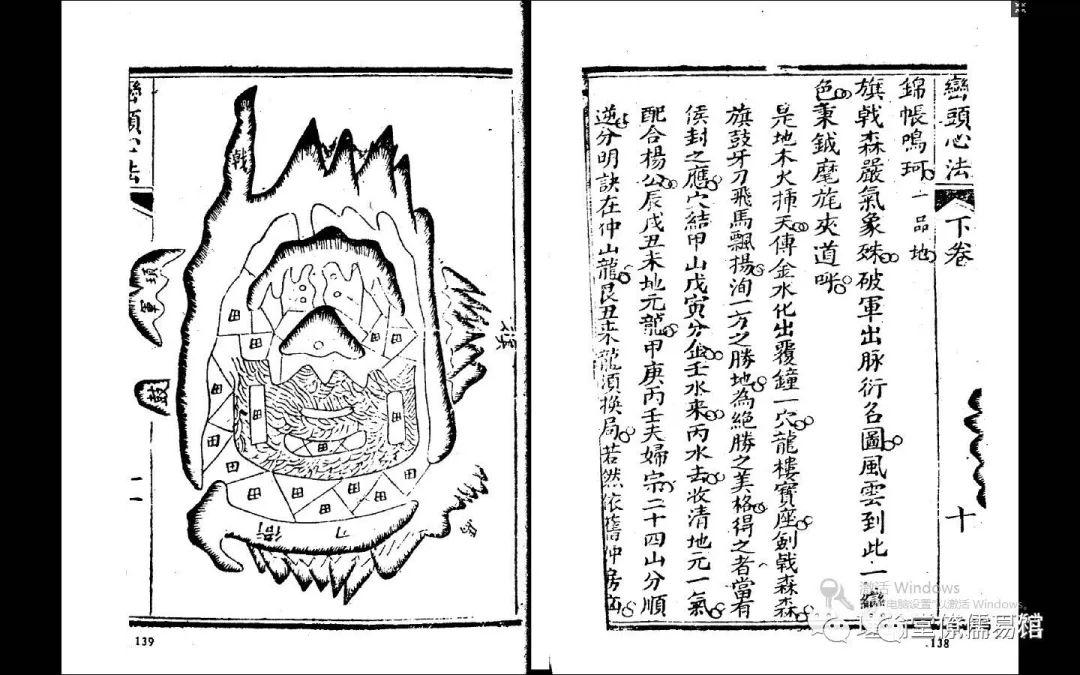 巒頭心法 下卷 十
錦帳鳴珂 一品地
旗戟森嚴氣象殊破軍出脉衍名圖風雲到此一變
色秉鉞麾旄夾道呼
是地木火揷天傳金水化出覆鐘一穴龍樓寶座劍戟森森
旗鼓牙刀飛馬飄揚洵一方之勝地為絕勝之美格得之者當有
侯封之應穴結甲山戊寅分金壬水來丙水去收清地元一氣
配合楊公辰戌丑未地元龍甲庚丙壬夫婦宗二十四山分順
逆分明訣在仲山龍艮丑來龍須換局若然依舊仲房凶
138
巒頭心法
十一
戟
旗
頓軍
鼓
田
田
田
田
田
田
田
田
田
田
田
田
田
田
衙刀
馬
139
激活 Windows
电脑设置"以激活 Windows。
儒易馆